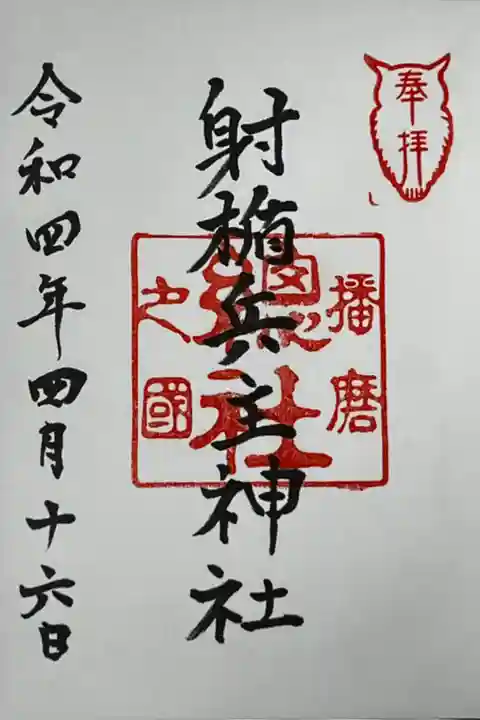 奉拝
播磨
総社
之國
射楯兵主神社
令和四年四月十六日